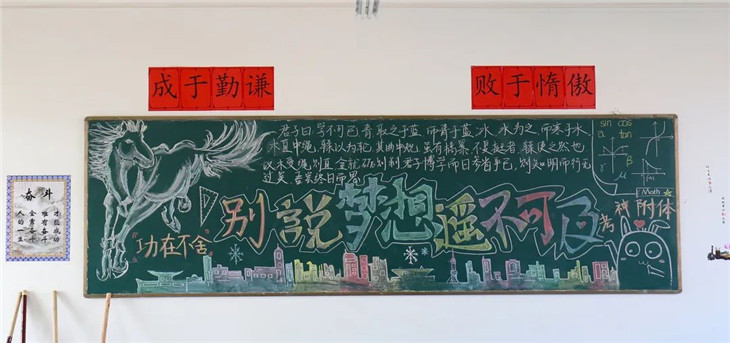 成于勤谦
败于惰傲
君子曰 学不可已 青取之于蓝 而青于蓝 冰 水为之 而寒于水
木直中绳 輮以为轮 其曲中规 虽有槁暴 不复挺者 輮使之然也
故木受绳则直 金就砺则利 君子博学而日参省乎己 则知明而行无
过矣 吾尝终日而思
别说梦想遥不可及
功在不舍
sin cos
α tan
β
μ
Math
考神附体
奋斗
人的一生
全靠奋斗
唯有奋斗
才能成功